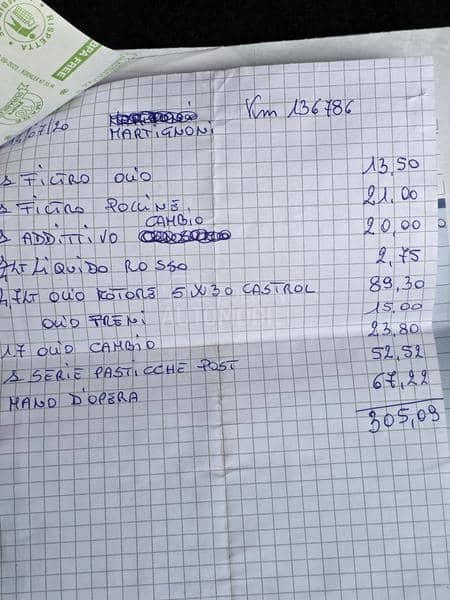 RISRETTA
BPA FREE
/07/20
MARTIGNONI
Km 136786
1 FILTRO OLIO 13,50
1 FILTRO POLLINE 21.00
CAMBIO
1 ADDITIVO 20,00
LIQUIDO ROSSO 2,75
4,7LT OLIO MOTORE 5W30 CASTROL 89,30
OLIO FRENI 15,00
1.7 OLIO CAMBIO 23,80
1 SERIE PASTICCHE POST 52,52
MANO D'OPERA 67,22
305,09